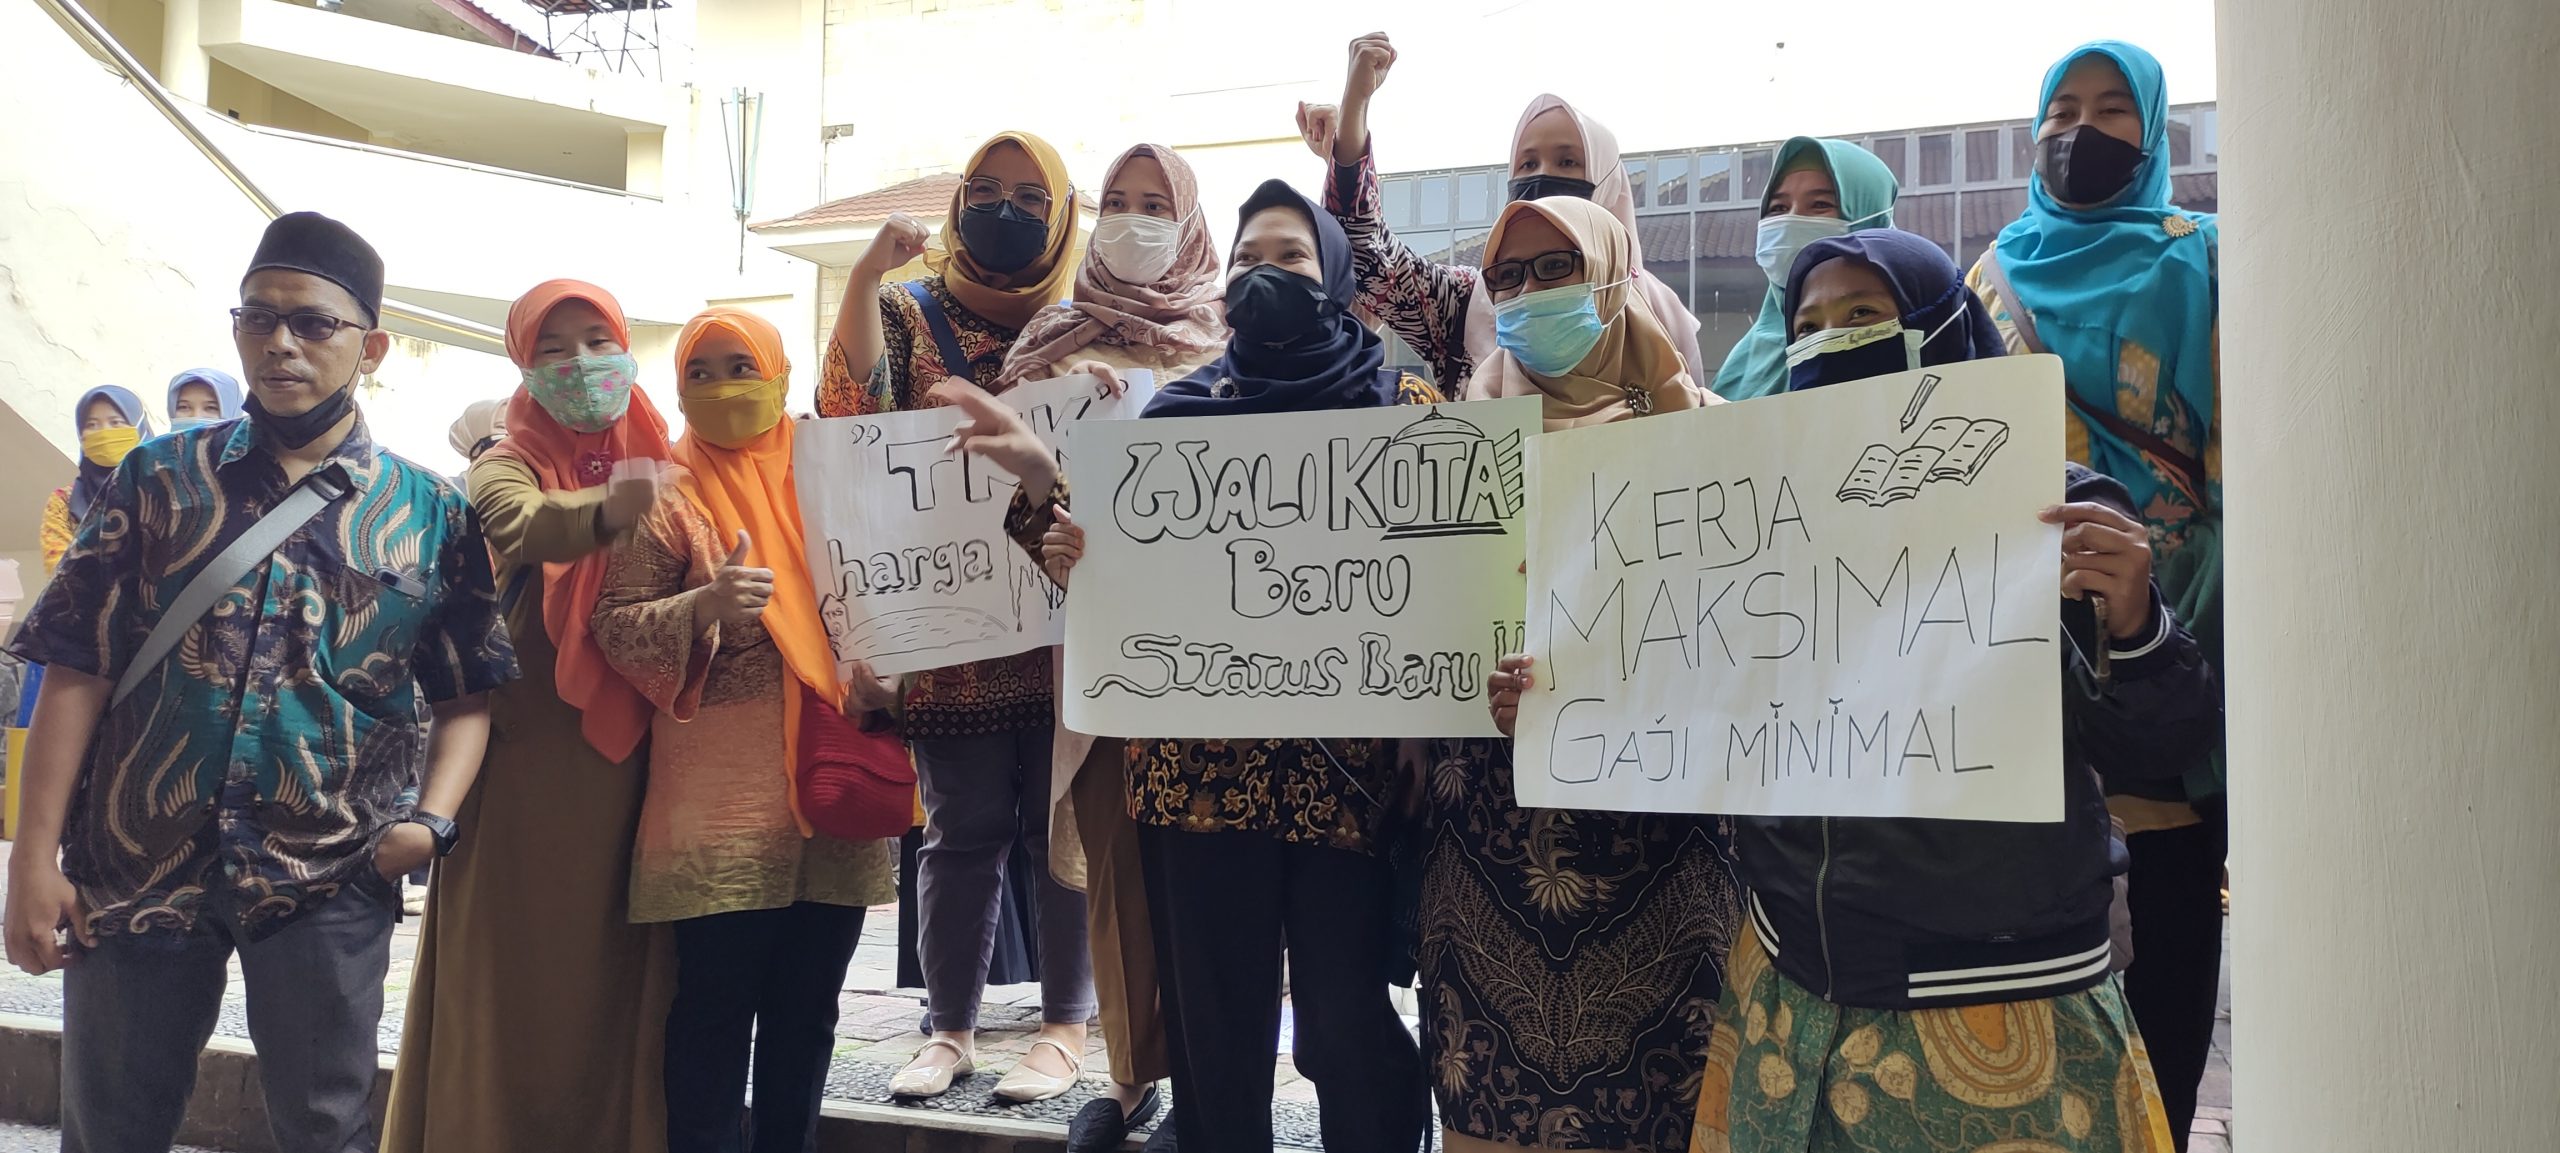 " TKK "
harga
TKS
WALIKOTA
Baru
Status Baru !!
KERJA
MAKSIMAL
GAJI MINIMAL